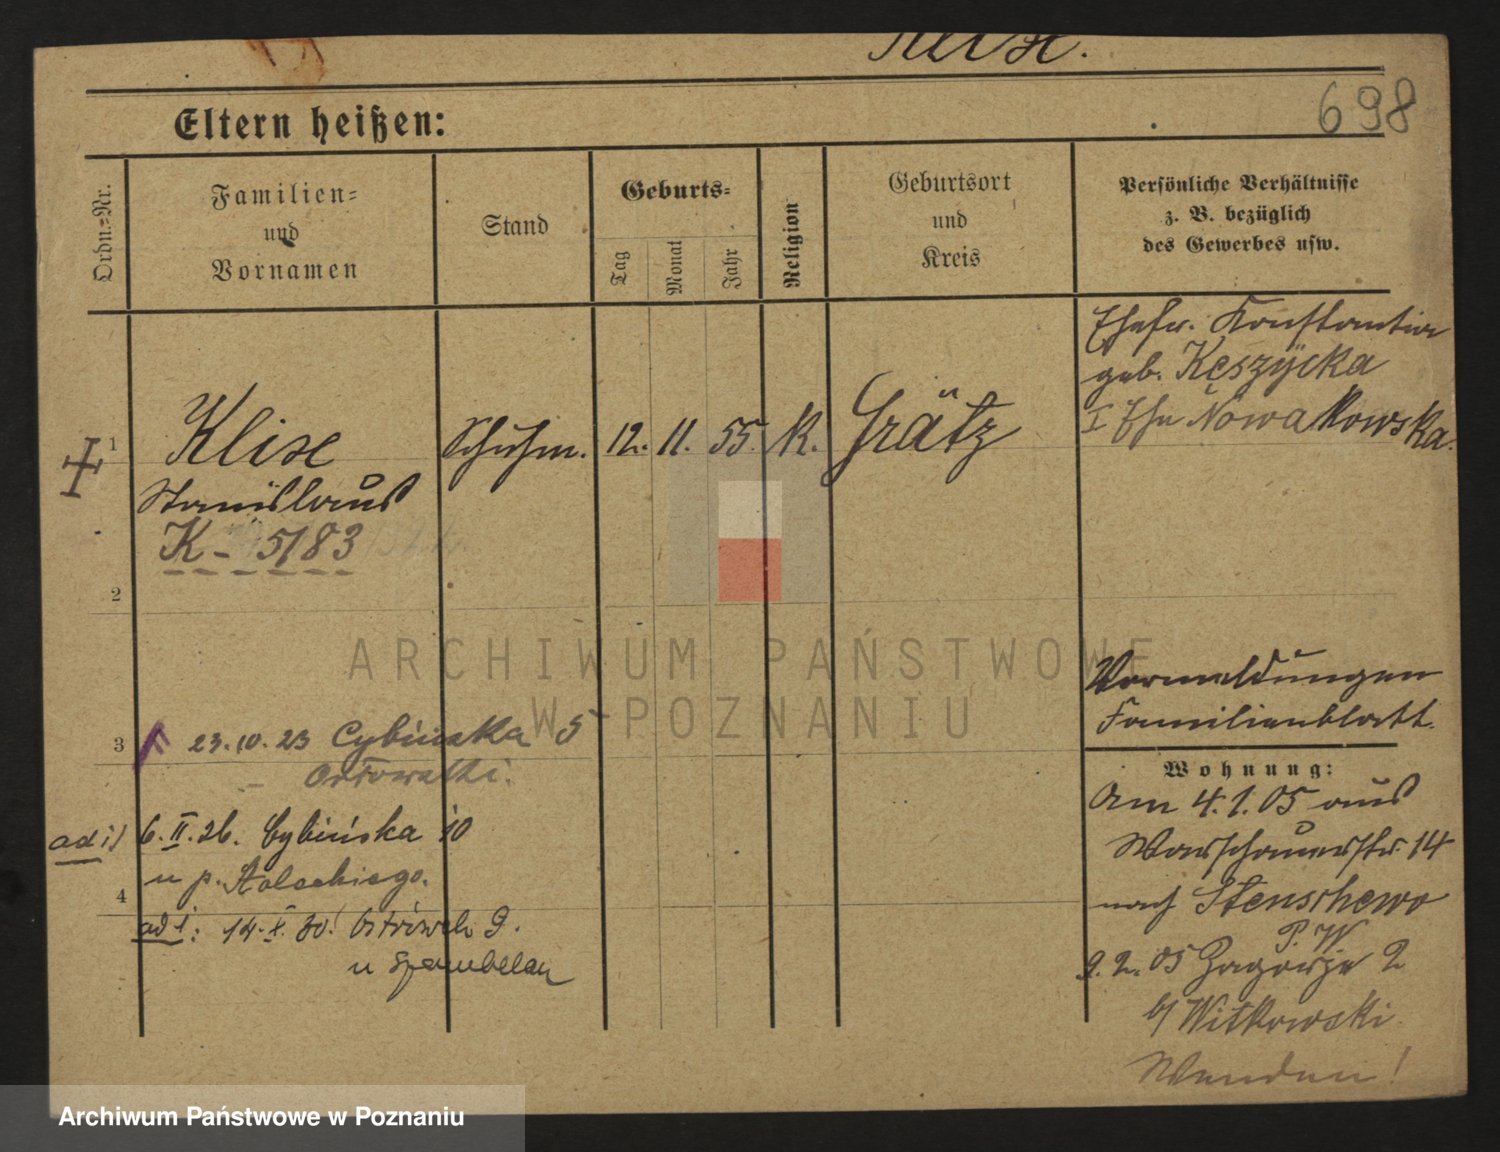 698
Eltern heißen:
Ordn.-Nr.
Familien-
und
Vornamen
Stand
Geburts-
Tag
Monat
Jahr
Religion
Geburtsort
und
Kreis
Persönliche Verhältnisse
z. B. bezüglich
des Gewerbes usw.
Ehefr. Konstantia
geb. Kęszycka
I Ehe Nowakowska.
1 Klise Schuhm. 12. 11. 55. K. Grätz
Stanislaus
K - 5183
2
ARCHIWUM PAŃSTWOWE
W POZNANIU
Vormeldungen
Familienblatt.
3 23.10.23 Cybińska 5
Wohnung:
Am 4.1.05 aus
Warschauerstr. 14
nach Stenschewo
P. W
9.2.05 Zagorze 2
b/ Witkowski
Wenden!
ad 1) 6.II.26. Cybińska 10
u p.
4
ad 1: 14.X.30! Ostrówek 9.
u Szambelan
Archiwum Państwowe w Poznaniu